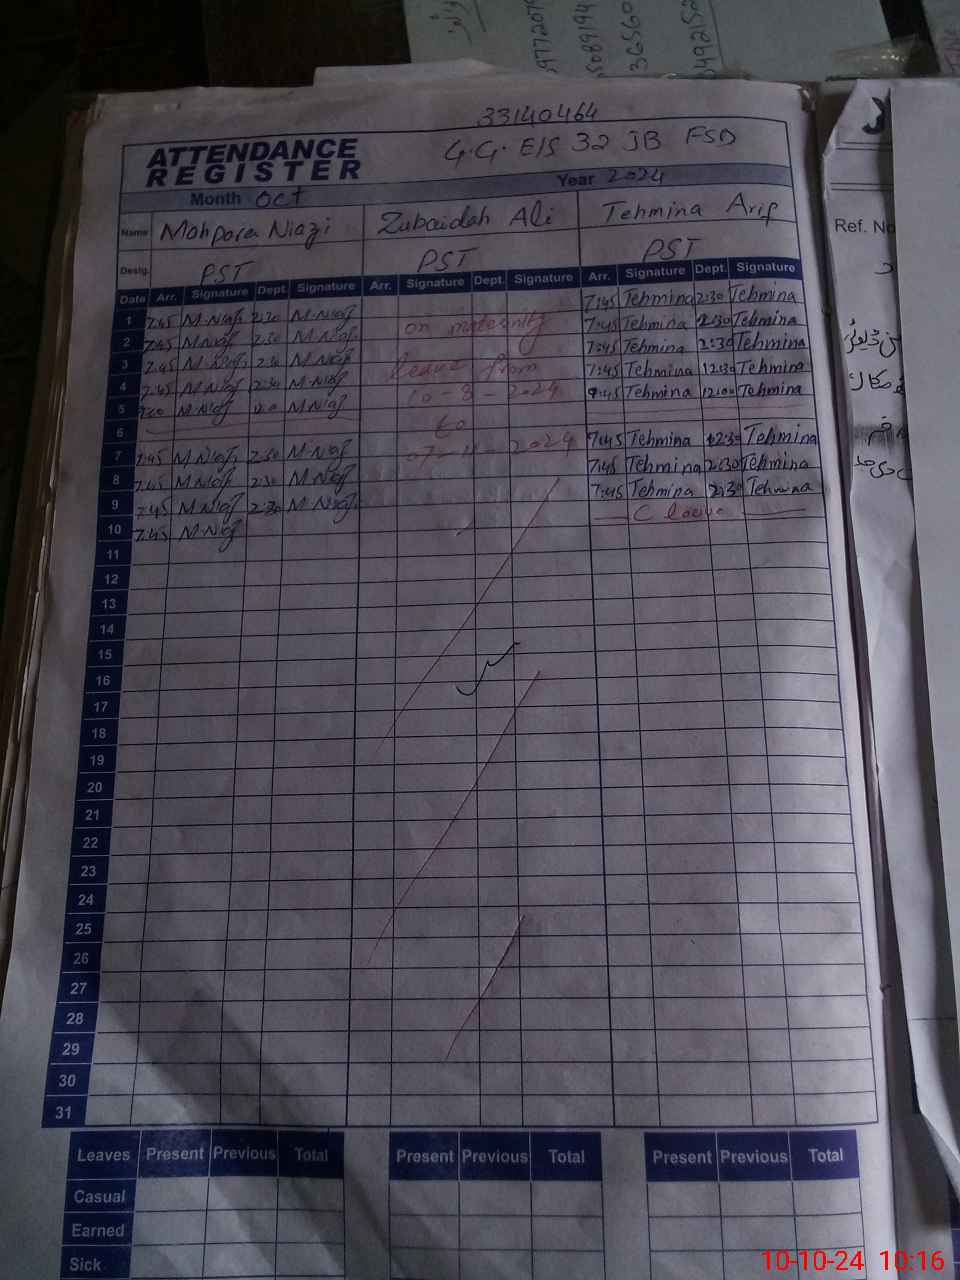 33140464
ATTENDANCE REGISTER
G.G. E/S 32 JB FSD
Month Oct Year 2024
Name Mahpara Niazi Zubaidah Ali Tehmina Arif
Desig. PST PST PST
Date Arr. Signature Dept. Signature Arr. Signature Dept. Signature Arr. Signature Dept. Signature
1 7:45 M.Niazi 2:30 M.Niazi on maternity 7:45 Tehmina 2:30 Tehmina
2 7:45 M.Niazi 2:30 M.Niazi 7:45 Tehmina 2:30 Tehmina
3 7:45 M.Niazi 2:30 M.Niazi leave from 7:45 Tehmina 2:30 Tehmina
4 7:45 M.Niazi M.Niazi 10-8-2024 7:45 Tehmina 12:30 Tehmina
5 M.Niazi M.Niazi Tehmina 12:00 Tehmina
6 to
7 7:45 M.Niazi 2:30 M.Niazi 07-11-2024 7:45 Tehmina 2:30 Tehmina
8 7:45 M.Niazi 2:30 M.Niazi 7:45 Tehmina 2:30 Tehmina
9 7:45 M.Niazi 2:30 M.Niazi 7:45 Tehmina 2:30 Tehmina
10 7:45 M.Niazi C leave
11
12
13
14
15
16
17
18
19
20
21
22
23
24
25
26
27
28
29
30
31
Leaves Present Previous Total Present Previous Total Present Previous Total
Casual
Earned
Sick
Ref. No
10-10-24 10:16